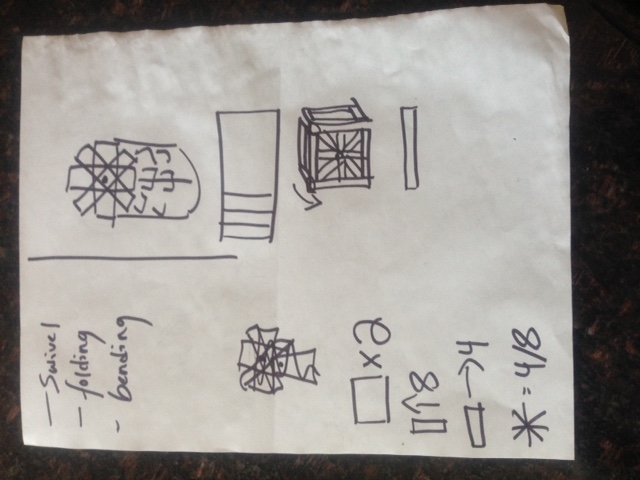 — Swivel
– folding
- bending
x2
↑8
→4
= 4/8